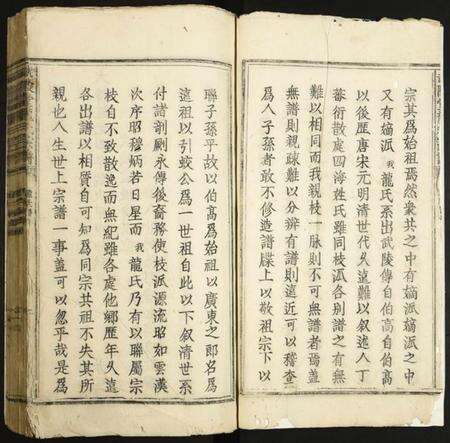 宗其爲始祖焉然衆共之中有嫡派嫡派之中
又有嫡派我龍氏系出武陵傳自伯高自伯高
以後歷唐宋元明清世代久遠難以叙述人丁
蕃衍散處四海姓氏雖同枝派各別譜之有無
難以相同而我親枝一脉則不可無譜者焉蓋
無譜則親疎難以分辨有譜則遠近可以稽查
爲人子孫者敢不修造譜牒上以敬祖宗下以
聯子孫乎故以伯高爲始祖以廣東之郎名爲
遠祖以引蛟公爲一世祖自此以下叙清世系
付諸剞劂永傳後裔務使枝派源流昭如雲漢
次序昭穆炳若日星而我龍氏乃有以聯屬宗
枝自不致散逸而無紀雖各處他鄉歷年久遠
各出譜以相質自可知爲同宗共祖不失其所
親也人生世上宗譜一事蓋可以忽乎哉是爲